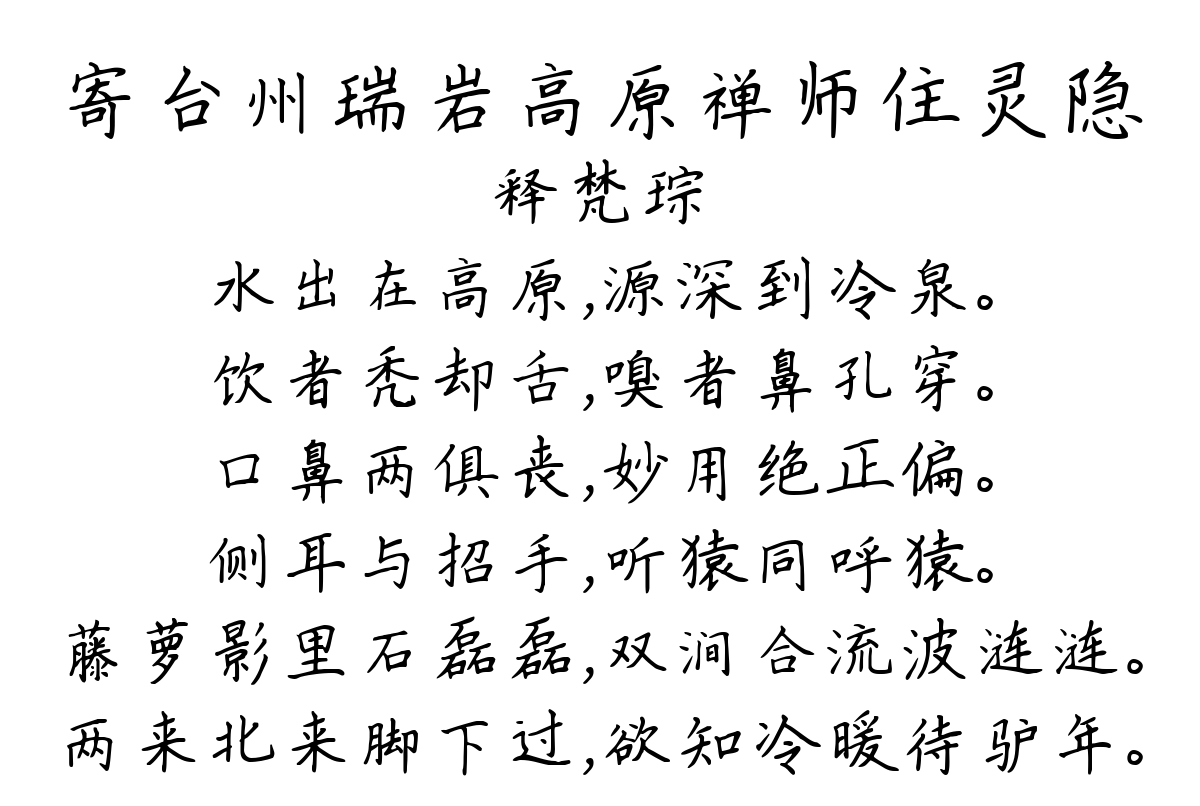 寄台州瑞岩高原禅师住灵隐
释梵琮
水出在高原,源深到冷泉。
饮者秃却舌,嗅者鼻孔穿。
口鼻两俱丧,妙用绝正偏。
侧耳与招手,听猿同呼猿。
藤萝影里石磊磊,双涧合流波涟涟。
两来北来脚下过,欲知冷暖待驴年。